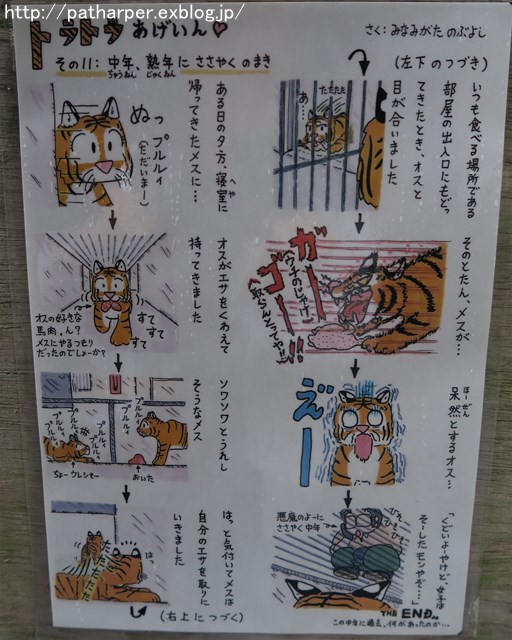 http://patharper.exblog.jp/
トラトラ あげいん♡
さく:みなみがた のぶよし
その11:中年、熟年に ささやくのまき
ちゅうねん じゅくねん
ある日の夕方、寝室に
へや
帰ってきたメスに…
ぬっ
プルルィ
(ただいまー)
オスがエサをくわえて
持ってきました
すて
すて
すて
オスの好きな
馬肉。ん?
メスにやるつもり
だったのでしょーか?
ソワソワとうれし
そうなメス
プルルィ
プルルィ
プルルィ
プルルィ
ちょーウレシー
おいた
はっと気付いてメスは
自分のエサを取りに
いきました
(右上につづく)
(左下のつづき)
いつも食べる場所である
部屋の出入口にもどっ
てきたとき、オスと
目が合いました
あ…
たたたた
そのとたん、メスが…
ガー
ゴー
呆然とするオス…
ぼーぜん
えー
「くどいよーやけど、女子は
そーしたモンやぞ…」
悪魔のよーに
ささやく中年
ひそ
ひそ
THE END。
この中年に過去、何があったのか…